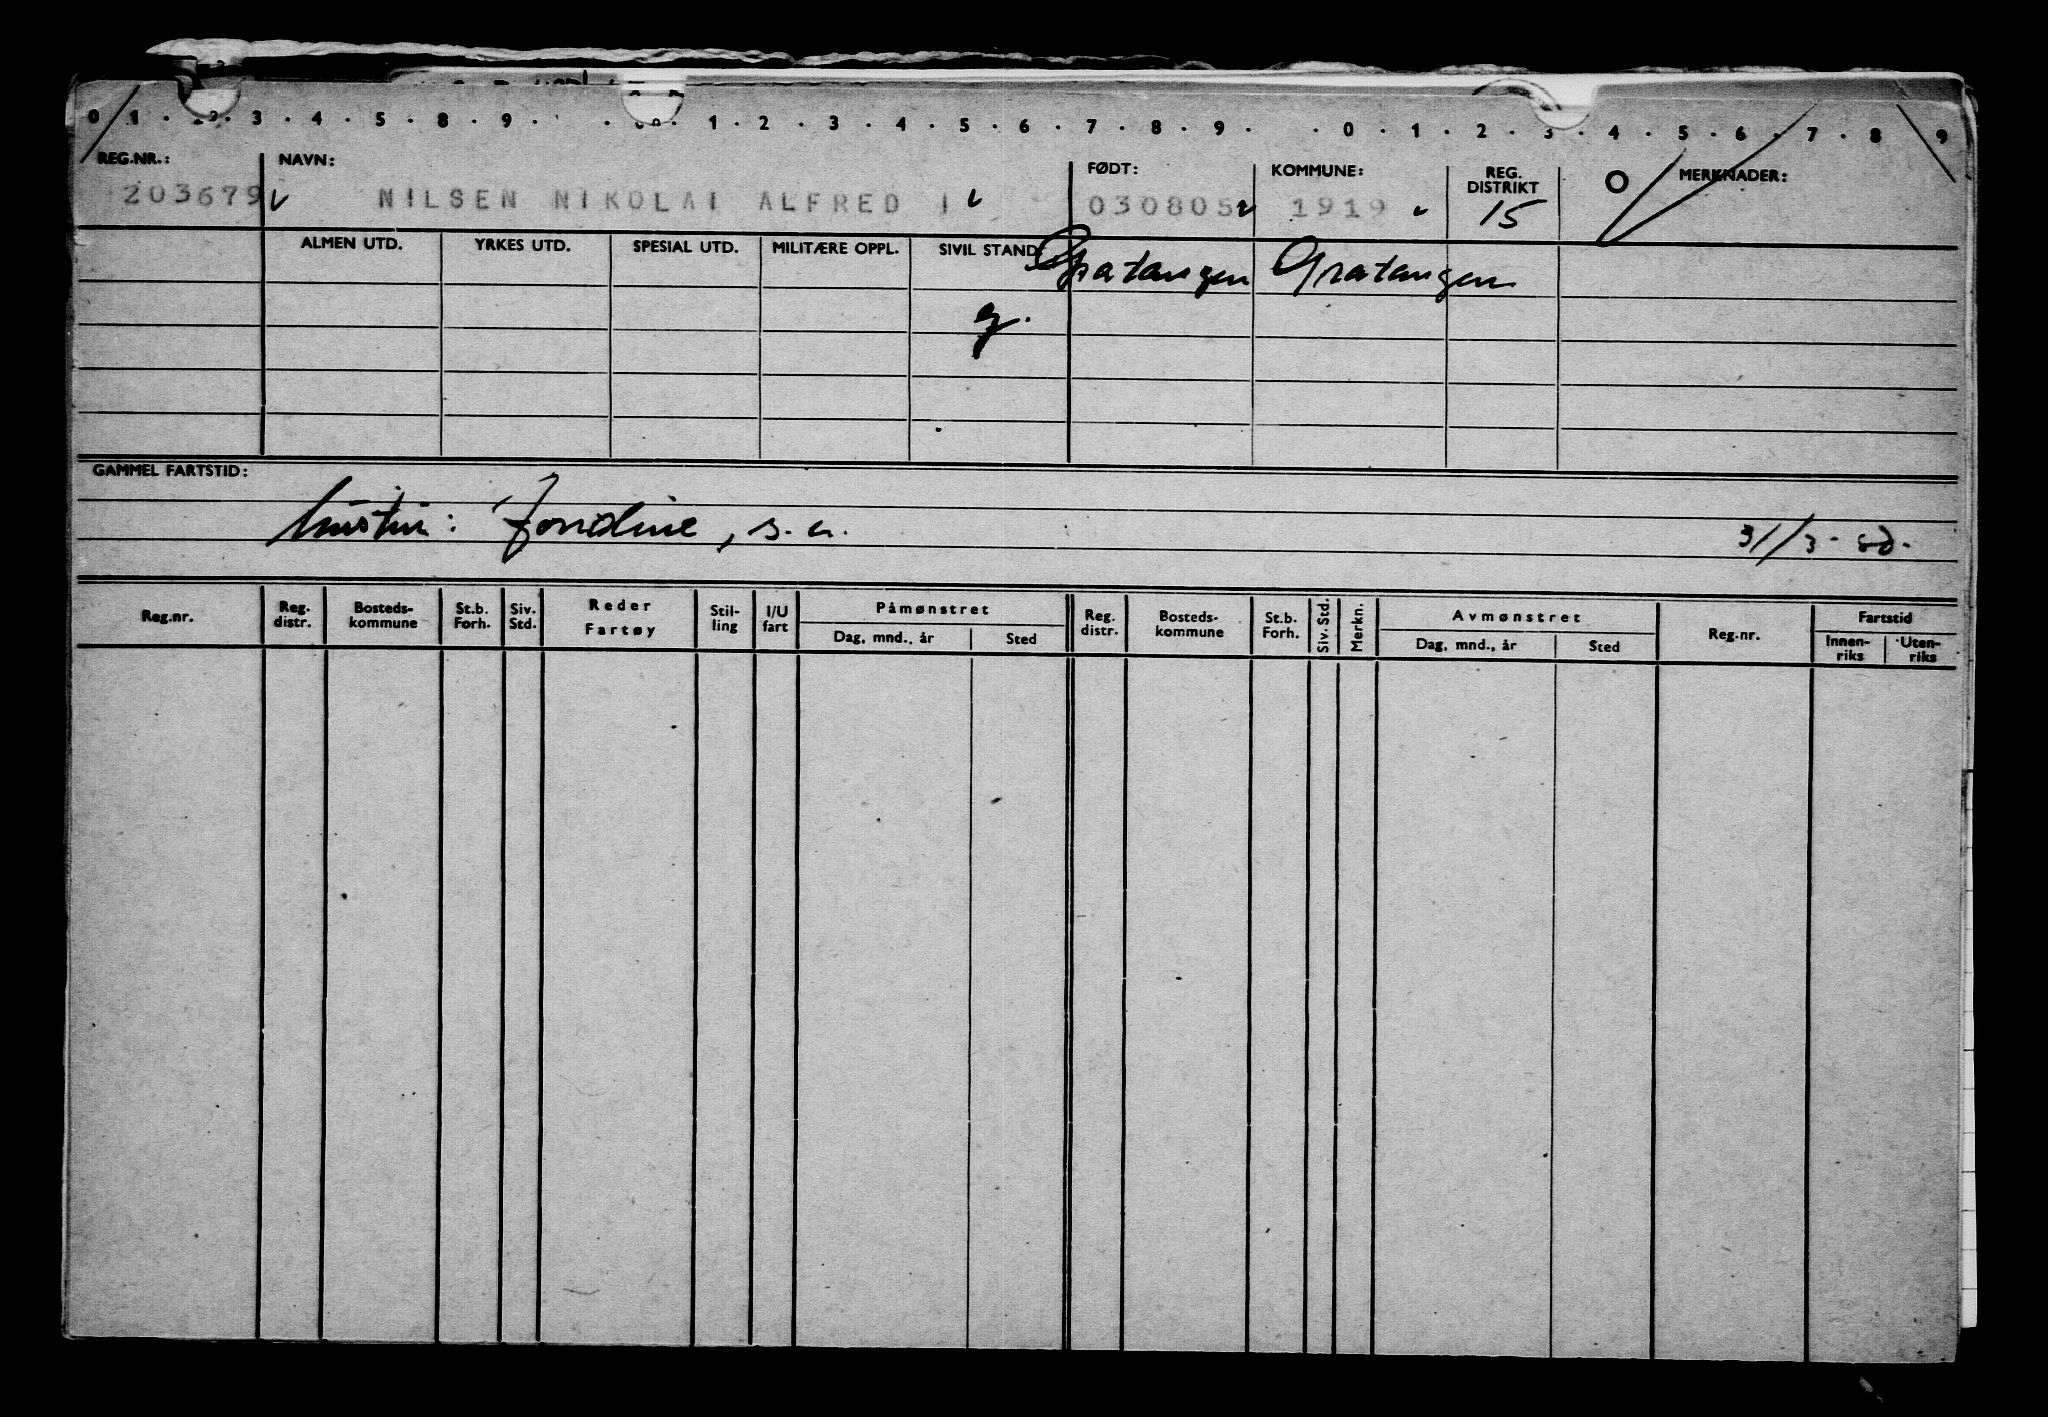 0 1 . 2 . 3 . 4 . 5 . 8 . 9 . . 1 . 2 . 3 . 4 . 5 . 6 . 7 . 8 . 9 . . 0 . 1 . 2 . 3 . 4 . 5 . 6 . 7 . 8 9
REG.NR.: NAVN: FØDT: KOMMUNE: REG. DISTRIKT O MERKNADER:
203679 NILSEN NIKOLAI ALFRED I 030805 1919 15
ALMEN UTD. YRKES UTD. SPESIAL UTD. MILITÆRE OPPL. SIVIL STAND Gratangen Gratangen
g.
GAMMEL FARTSTID:
hustru: Jondine, s.a. 31/3-
Reg.nr. Reg. distr. Bosteds-kommune St.b. Forh. Siv. Std. Reder Fartøy Stil-ling I/U fart Påmønstret Reg. distr. Bosteds-kommune St.b. Forh. Siv. Std. Merkn. Avmønstret Reg.nr. Fartstid
Dag, mnd., år Sted Dag, mnd., år Sted Innen-riks Uten-riks